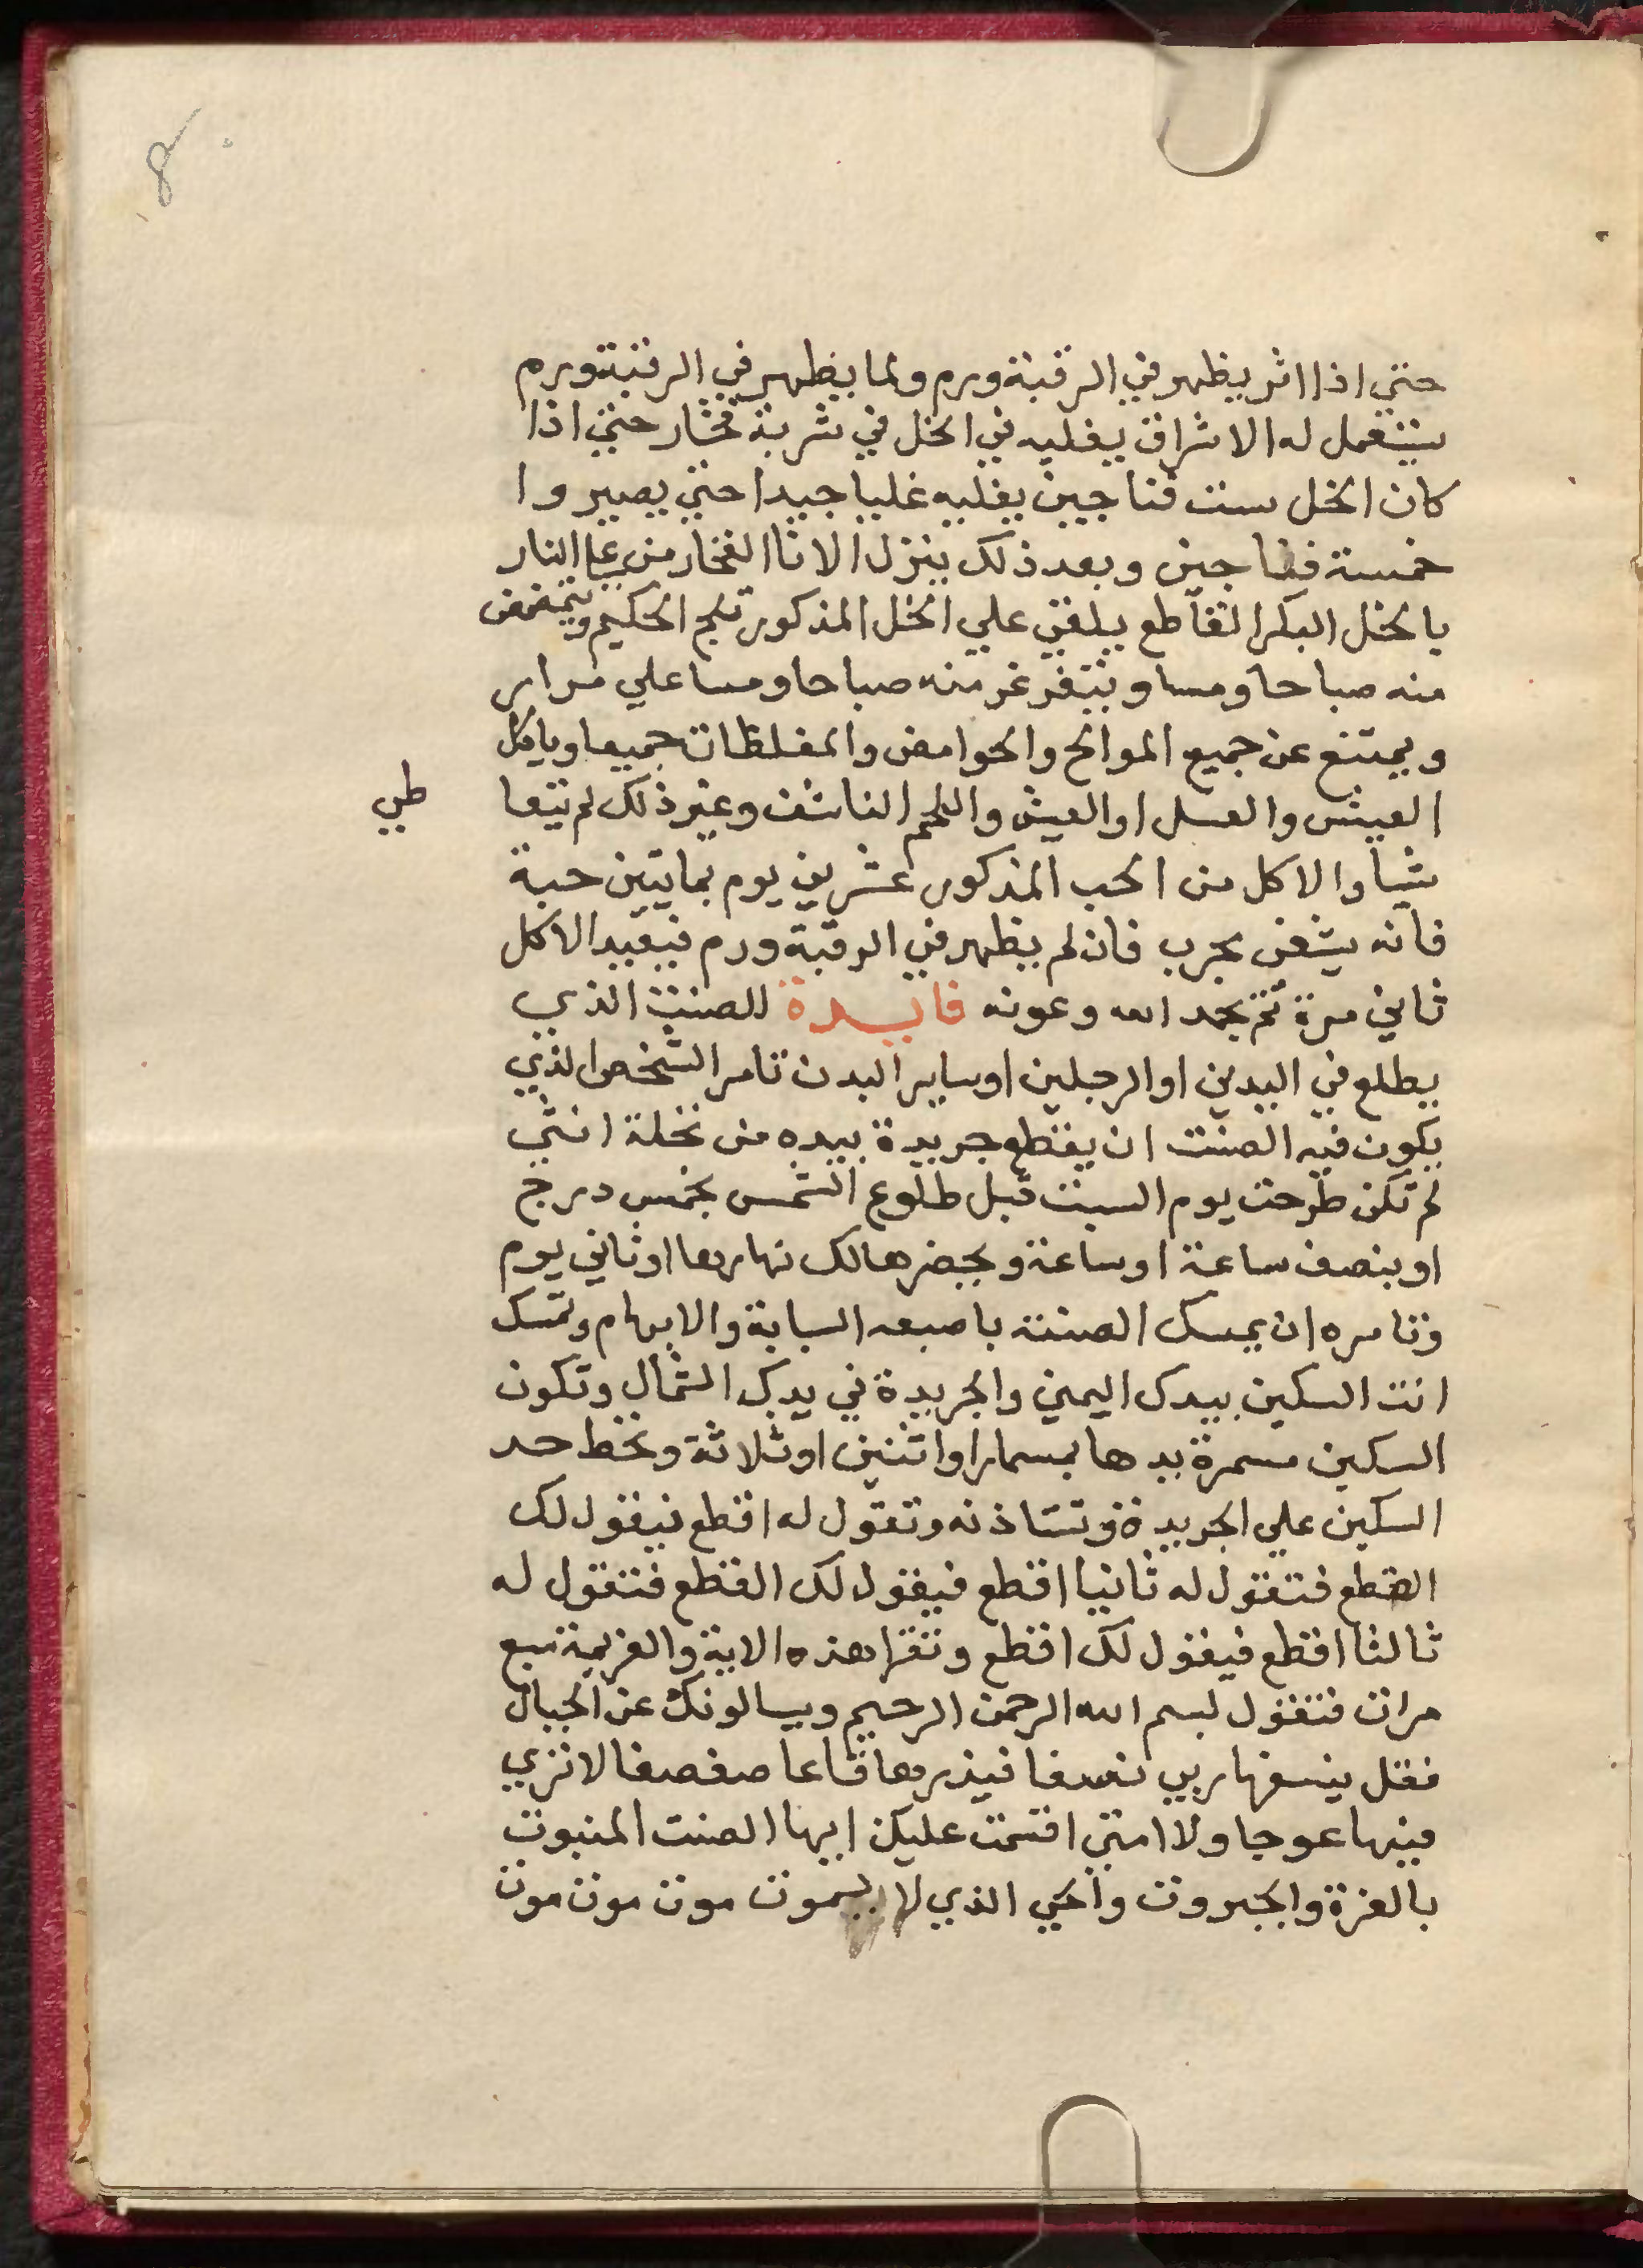 حتي اذا اثر يظهر في الرقبة ورم ولما يظهر في الرقبة ورم
يستعمل له الاشراق يغليه في الخل في شربة فخار حتي اذا
كان الخل ست فناجين يغليه غليا جيدا حتي يصيروا
خمسة فناجين وبعد ذلك ينزل الانا الفخار من علي النار
بالخل البكر القاطع يلقي علي الخل المذكور ملح الحكيم ويتمضمض
منه صباحا ومسا ويتغرغر منه صباحا ومسا علي مرار
ويمتنع عن جميع الموالح والحوامض والمغلظات جميعا وياكل
العيش والعسل او العيش واللحم الناشف وغير ذلك لم يتعا
طي
شيا والاكل من الحب المذكور عشرين يوم بمايتين حبة
فانه يشفي مجرب فان لم يظهر في الرقبة ورم فيعيد الاكل
ثاني مرة تم بحمد الله وعونه فايدة للصنت الذي
يطلع في اليدين او الرجلين او ساير البدن تامر الشخص الذي
يكون فيه الصنت ان يقطع جريدة بيده من نخلة انثي
لم تكن طرحت يوم السبت قبل طلوع الشمس بخمس درج
او بنصف ساعة او ساعة ويحضرها لك نهارها او ثاني يوم
وتامره ان يمسك الصنته باصبعه السبابة والابهام وتمسك
انت السكين بيدك اليمين والجريدة في يدك الشمال وتكون
السكين مسمرة يدها بمسمار او اثنين او ثلاثة وتحط حد
السكين علي الجريدة وتستاذنه وتقول له اقطع فيقول لك
اقطع فتقول له ثانيا اقطع فيقول لك اقطع فتقول له
ثالثا اقطع فيقول لك اقطع وتقرا هذه الاية والعزيمة سبع
مرات فتقول بسم الله الرحمن الرحيم ويسالونك عن الجبال
فقل ينسفها ربي نسفا فيذرها قاعا صفصفا لا تري
فيها عوجا ولا امتي اقسمت عليكن ايها الصنت المنبوت
بالعزة والجبروت والحي الذي لا يموت موت موت موت